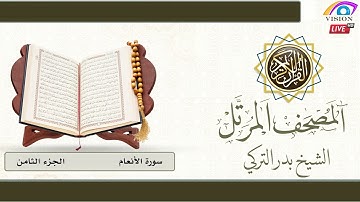 VISION
LIVE
القرآن الكريم
المصحف المرتل
الشيخ بدر التركي
سورة الأنعام
الجزء الثامن